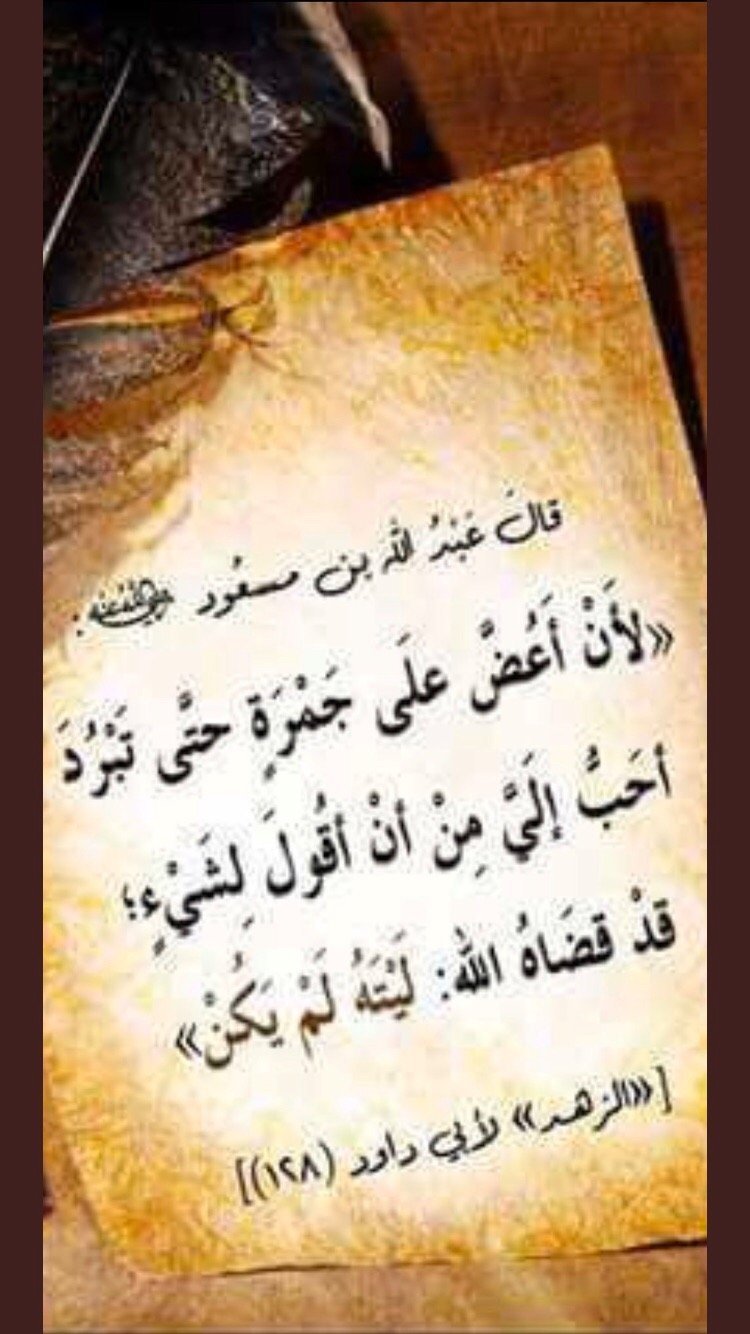 قالَ عَبْدُ اللّه بن مسعُود رضي الله عنه :
«لأَنْ أَعُضَّ علَى جَمْرَةٍ حتَّى تَبْرُدَ
أحَبُّ إلَيَّ مِنْ أنْ أقُولَ لِشَيْءٍ؛
قدْ قضَاهُ اللّه: لَيْتَهُ لَمْ يَكُنْ»
[«الزهد» لأبي داود (١٢٨)]